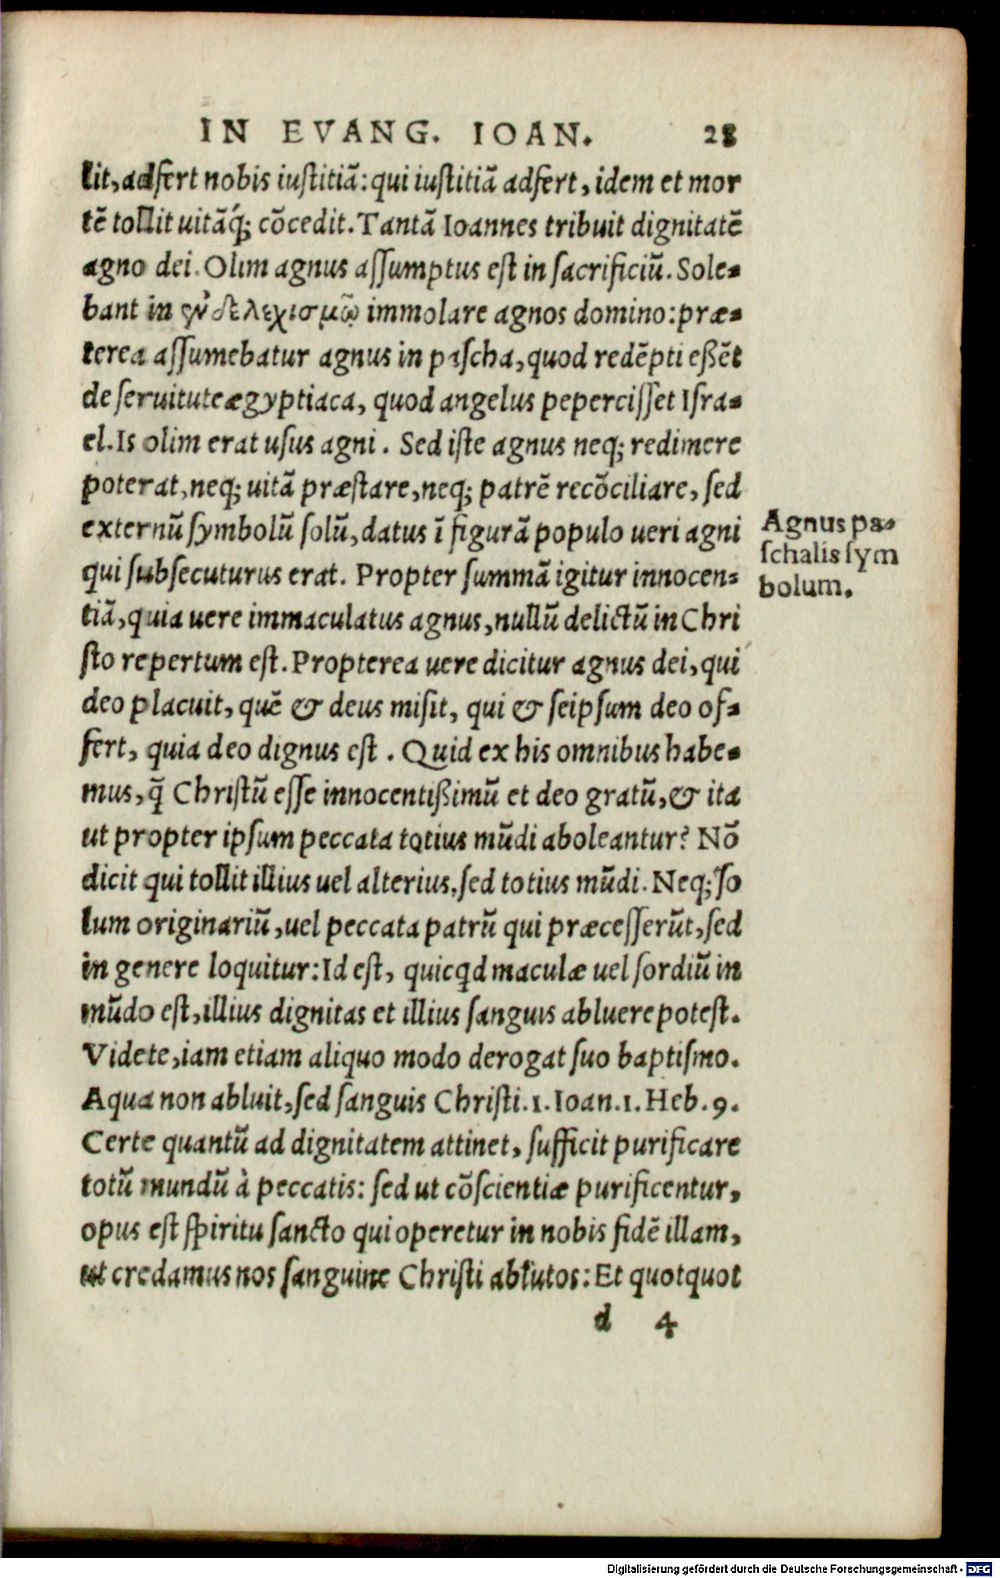 IN EVANG. IOAN. 28
lit, adfert nobis iustitiã: qui iustitiã adfert, idem et mor
tẽ tollit uitãq́; cõcedit. Tantã Ioannes tribuit dignitatẽ
agno dei. Olim agnus assumptus est in sacrificiũ. Sole-
bant in immolare agnos domino: præ-
terea assumebatur agnus in pascha, quod redẽpti eßẽt
de seruitute ægyptiaca, quod angelus pepercisset Isra-
el. Is olim erat usus agni. Sed iste agnus neq; redimere
poterat, neq; uitã præstare, neq; patrẽ recõciliare, sed
externũ symbolũ solũ, datus ĩ figurã populo ueri agni
qui subsecuturus erat. Propter summã igitur innocen-
tiã, quia uere immaculatus agnus, nullũ delictũ in Chri
sto repertum est. Propterea uere dicitur agnus dei, qui
deo placuit, quẽ & deus misit, qui & seipsum deo of-
fert, quia deo dignus est. Quid ex his omnibus habe-
mus, q̃ Christũ esse innocentißimũ et deo gratũ, & ita
ut propter ipsum peccata totius mũdi aboleantur? Nõ
dicit qui tollit illius uel alterius, sed totius mũdi. Neq; so
lum originariũ, uel peccata patrũ qui præcesserũt, sed
in genere loquitur: Id est, quicqd maculæ uel sordiũ in
mũdo est, illius dignitas et illius sanguis abluere potest.
Videte, iam etiam aliquo modo derogat suo baptismo.
Aqua non abluit, sed sanguis Christi. 1. Ioan. 1. Heb. 9.
Certe quantũ ad dignitatem attinet, sufficit purificare
totũ mundũ à peccatis: sed ut cõscientiæ purificentur,
opus est spiritu sancto qui operetur in nobis fidẽ illam,
ut credamus nos sanguine Christi ablutos: Et quotquot
d 4
Agnus pa-
schalis sym
bolum.
Digitalisierung gefördert durch die Deutsche Forschungsgemeinschaft - DFG